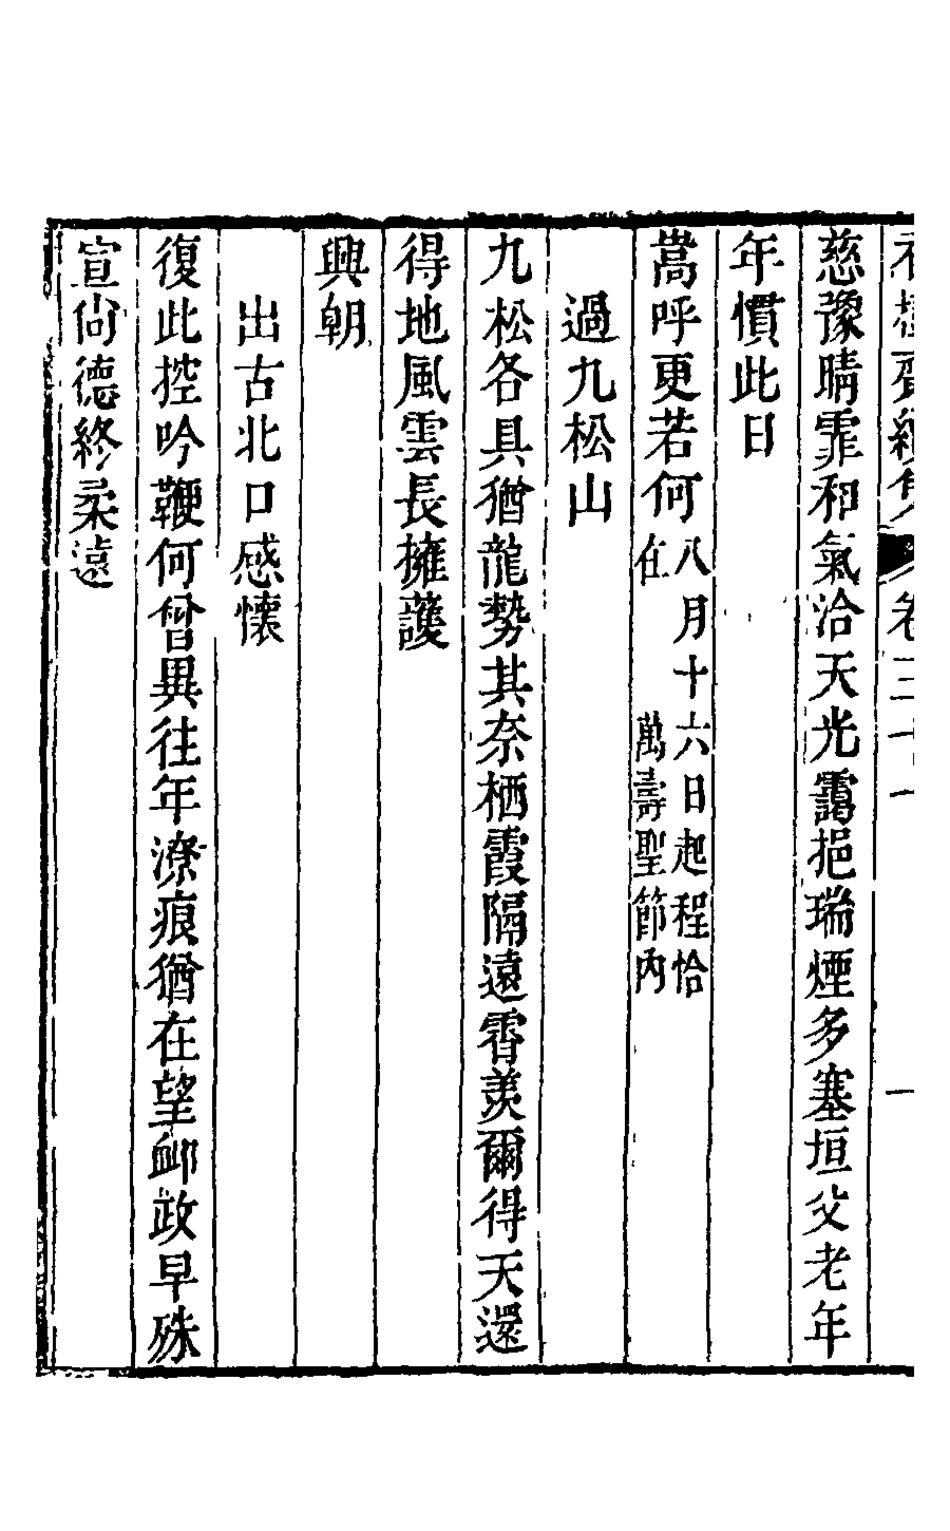 卷三十一 一
慈豫晴霏和氣洽天光靄挹瑞煙多塞垣父老年
年慣此日
嵩呼更若何
八月十六日起程恰
在萬壽聖節內
過九松山
九松各具猶龍勢其奈栖霞隔遠霄羨爾得天還
得地風雲長擁護
興朝
出古北口感懷
復此控吟鞭何曾異往年潦痕猶在望卹政早殊
宣尙德終柔遠